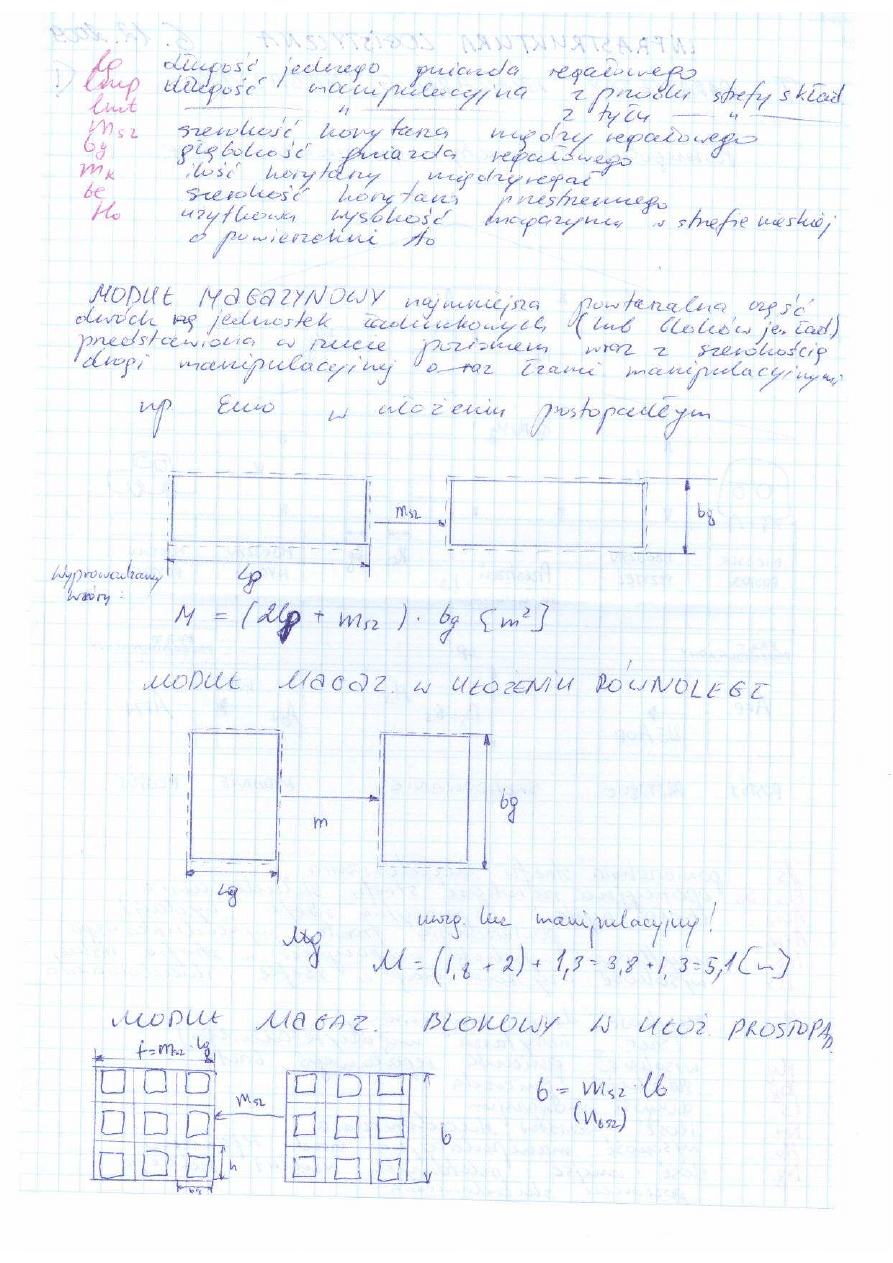 INFRASTRUKTURA LOGISTYCZNA 5. 12. 2009
lg długość jednego gniazda regałowego
lmp długość manipulacyjna z przodu strefy skład.
lmt —— " —— z tyłu —— " ——
msz szerokość korytarza między regałowego
bg głębokość gniazda regałowego
mk ilość korytarzy międzyregał
be szerokość korytarza przestrzennego
Ho użytkowa wysokość magazynu w strefie
o powierzchni Ao
MODUŁ MAGAZYNOWY najmniejsza powtarzalna część
dwóch jednostek ładunkowych (lub bloków jes ład)
przedstawiona w rzucie poziomem wraz z szerokością
drogi manipulacyjnej oraz luzami manipulacyjnymi
np Euro w ułożeniu prostopadłym
msz
bg
Lg
Wyprowadzamy
wzory:
M = (2lg + msz) · bg [m²]
MODUŁ MAGAZ. W UŁOŻENIU RÓWNOLEGŁ
m
bg
Lg
uwzg. luz manipulacyjny!
M = (1,8 + 2) + 1,3 = 3,8 + 1,3 = 5,1 [m]
MODUŁ MAGAZ. BLOKOWY W UŁOŻ. PROSTOPAD.
f = msz · lg
msz
b
h
b = msz · lb
(nbsz)